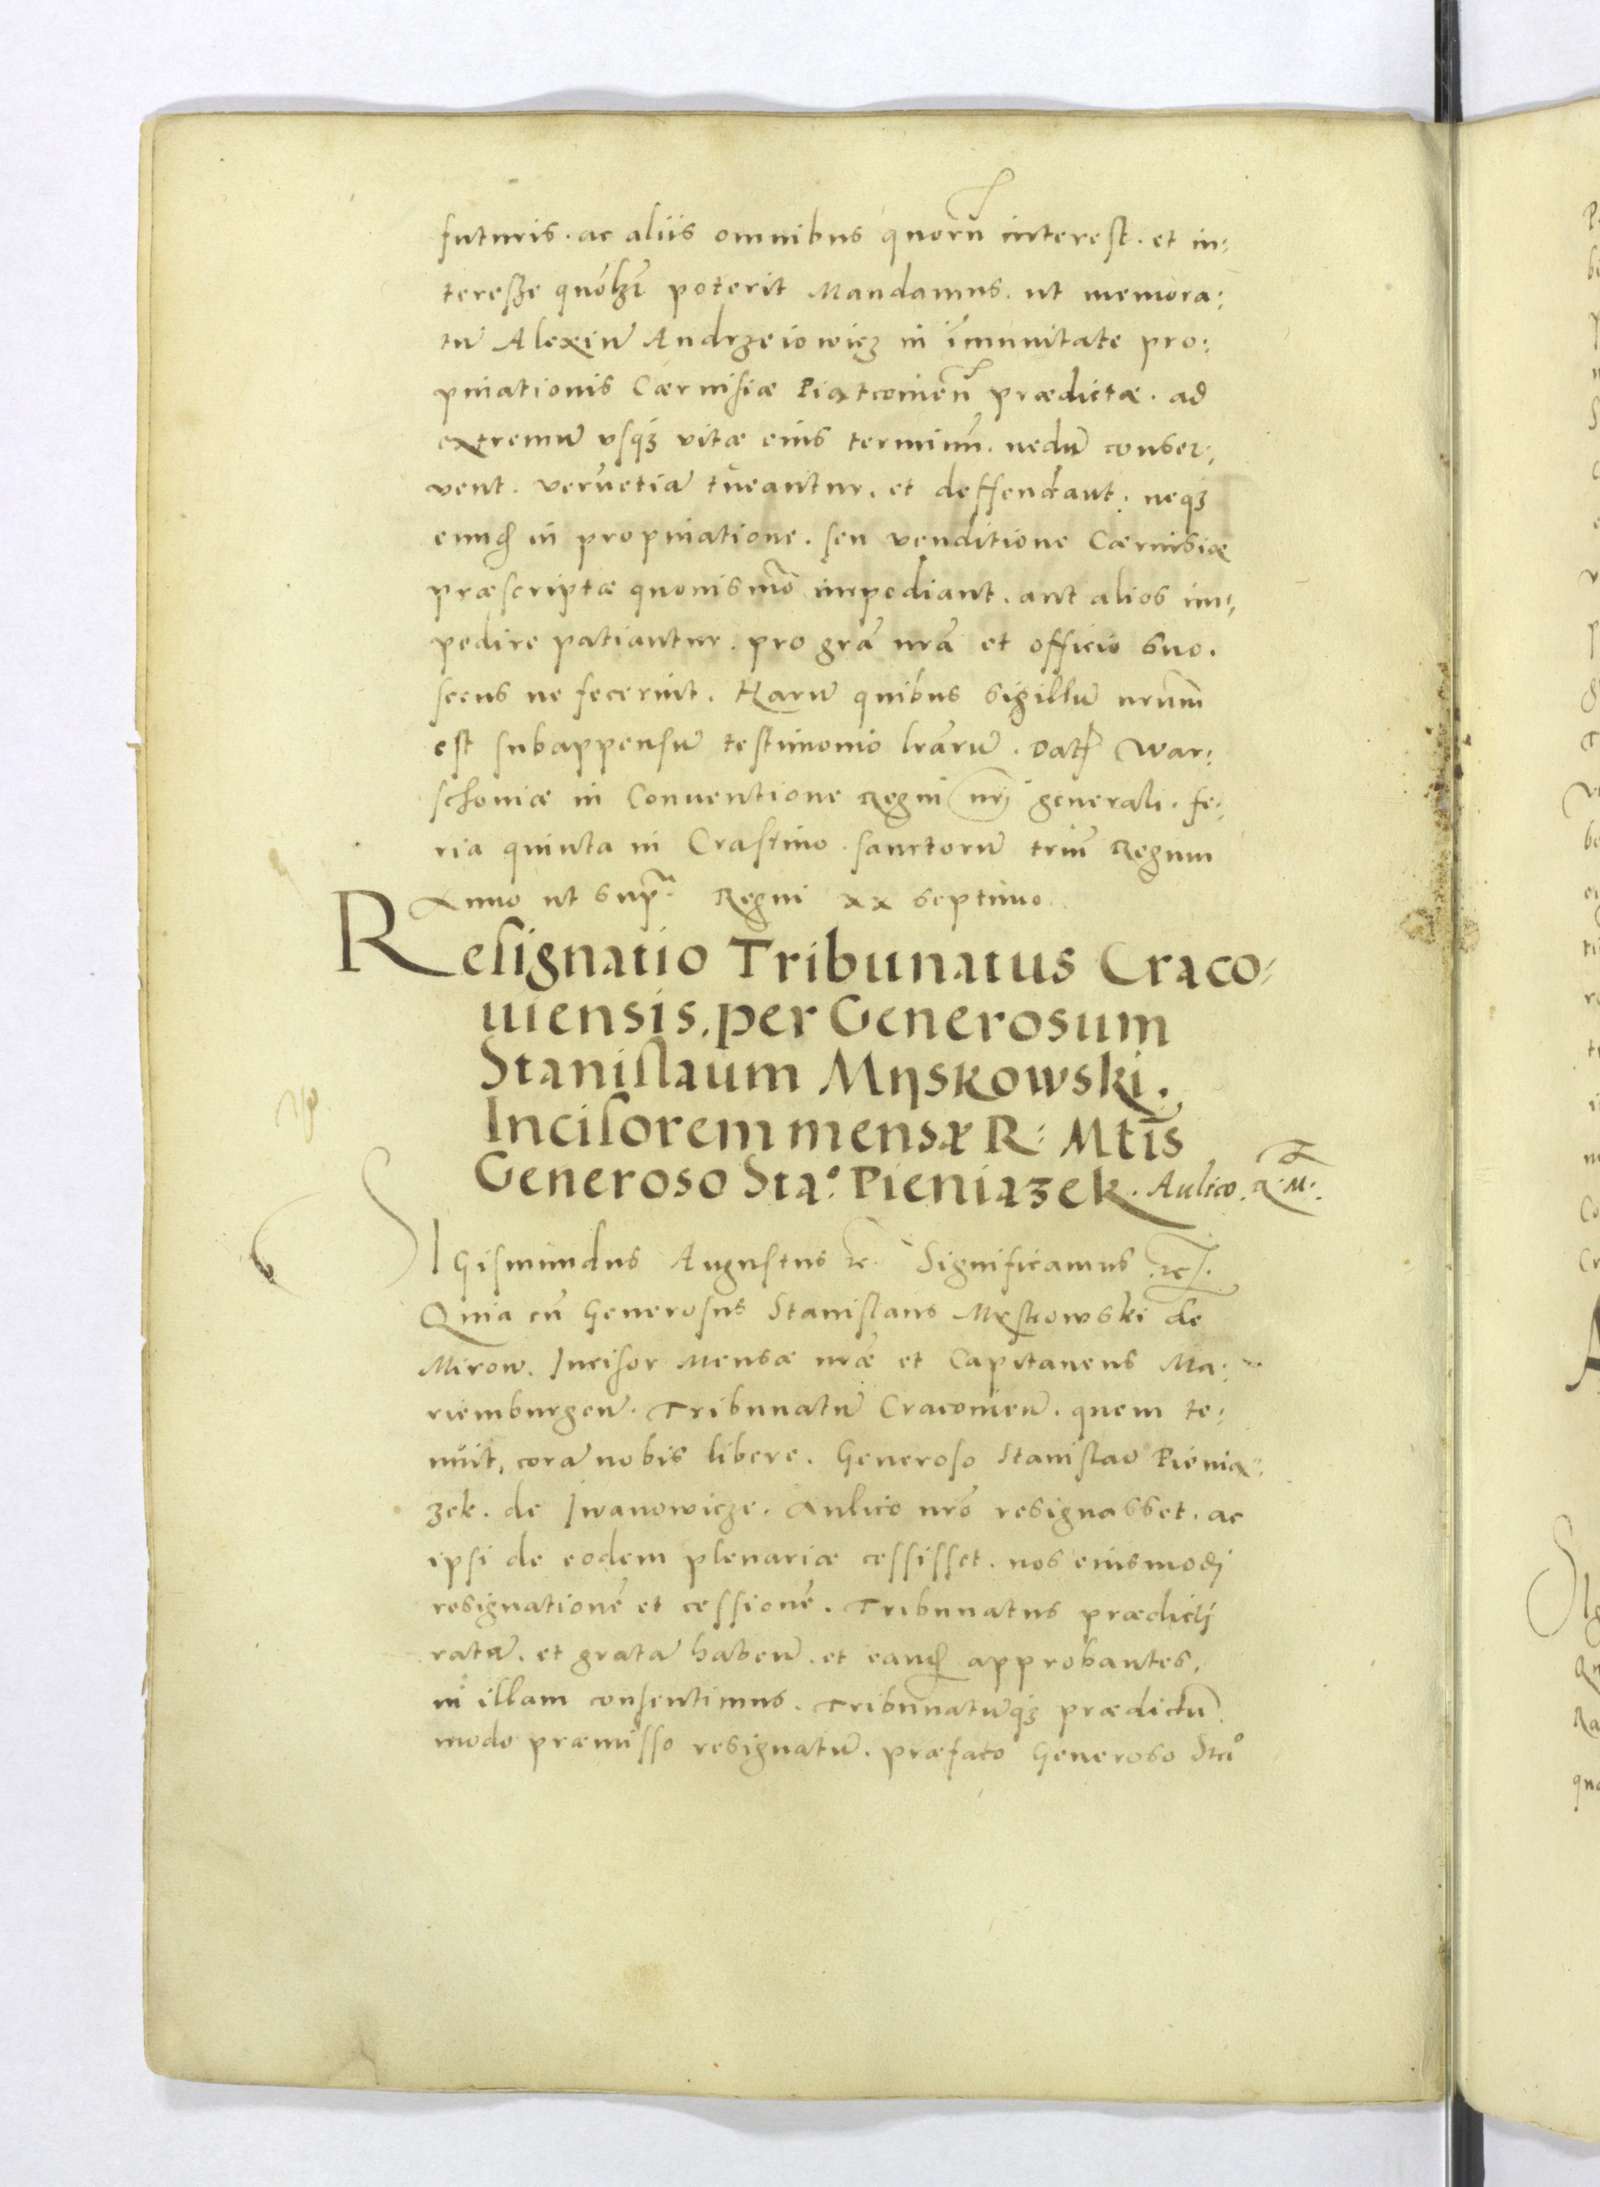 futuris. ac aliis omnibus quorū interest. et in:
teresse quolz̄t poterit Mandamus. ut memora:
tū Alexiū Andrzeiowicz in im̄unitate pro:
pinationis Cærvisiæ Piatcovień prædictæ. ad
extremū usq₃ vitæ eius terminū. nedū conser:
vent. verūetiā tueantur. et deffendant. neq₃
eundē in propinatione. seu venditione Cærvisiæ
præscriptæ quovismō impediant. aut alios im:
pedire patiantur. pro grā nrā et officio suo.
secus ne fecerint. Harū quibus sigillū nrūm
est subappensū testimonio lrārū. Datē War:
schoviæ in Conventione Regni nrj generali. fe:
ria quinta in Crastino sanctorū triū Regum
Anno ut supra. Regni xx septimo.
Resignatio Tribunatus Craco:
uiensis. per Generosum
Stanislaum Myskowski.
Incisorem mensæ R: Mtis
Generoso Stao. Pieniazek. Aulico. R. M.
SIGismundus Augustus etc. Significamus etc.
Quia cū Generosus Stanislaus Myskowski de
Mirow. Incisor Mensæ nræ et Capitaneus Ma:
rieemburgeń. Tribunatū Cracovień. quem te:
nuit, corā nobis libere. Generoso Stanislao Pienia:
zek. de Iwanowicze. Aulico nrō resignasset. ac
ipsi de eodem plenariæ cessisset. nos eiusmodj
resignationē et cessionē. Tribunatus prædictj
ratā. et gratā habeń. et eandē approbantes,
in illam consentimus. Tribunatūq₃ prædictū
modo præmisso resignatū. præfato Generoso Stao